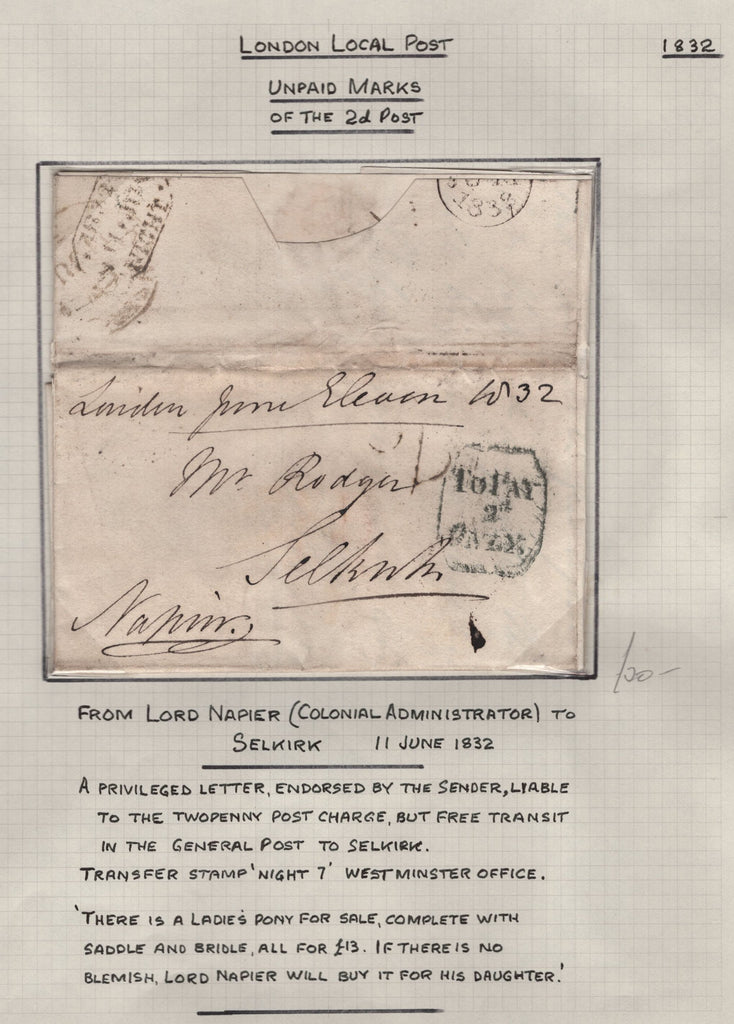 LONDON LOCAL POST
1832
UNPAID MARKS
OF THE 2d POST
NIGHT
London June Eleven 1832
Mr Rodger
To Pay
2d
ONLY
Selkirk
Napier
120-
FROM LORD NAPIER (COLONIAL ADMINISTRATOR) TO
SELKIRK 11 JUNE 1832
A PRIVILEGED LETTER, ENDORSED BY THE SENDER, LIABLE
TO THE TWOPENNY POST CHARGE, BUT FREE TRANSIT
IN THE GENERAL POST TO SELKIRK.
TRANSFER STAMP 'NIGHT 7' WESTMINSTER OFFICE.
'THERE IS A LADIE'S PONY FOR SALE, COMPLETE WITH
SADDLE AND BRIDLE, ALL FOR £13. IF THERE IS NO
BLEMISH, LORD NAPIER WILL BUY IT FOR HIS DAUGHTER.'